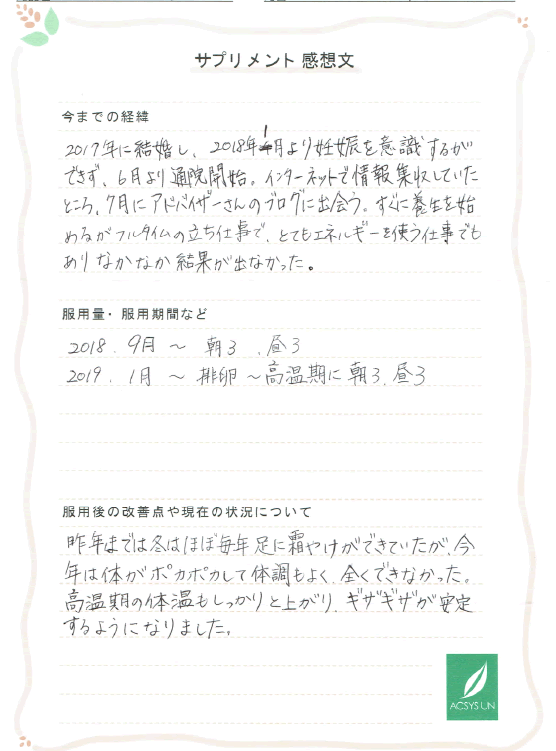 サプリメント 感想文
今までの経緯
2017年に結婚し、2018年1月より妊娠を意識するが
できず、6月より通院開始。インターネットで情報集収していた
ところ、7月にアドバイザーさんのブログに出会う。すぐに養生を始
めるがフルタイムの立ち仕事で、とてもエネルギーを使う仕事でも
ありなかなか結果が出なかった。
服用量・服用期間など
2018.9月〜 朝3、昼3
2019.1月〜排卵〜高温期に朝3、昼3
服用後の改善点や現在の状況について
昨年までは冬はほぼ毎年足に霜やけができていたが、今
年は体がポカポカして体調もよく、全くできなかった。
高温期の体温もしっかりと上がり、ギザギザが安定
するようになりました。
ACSYS UN